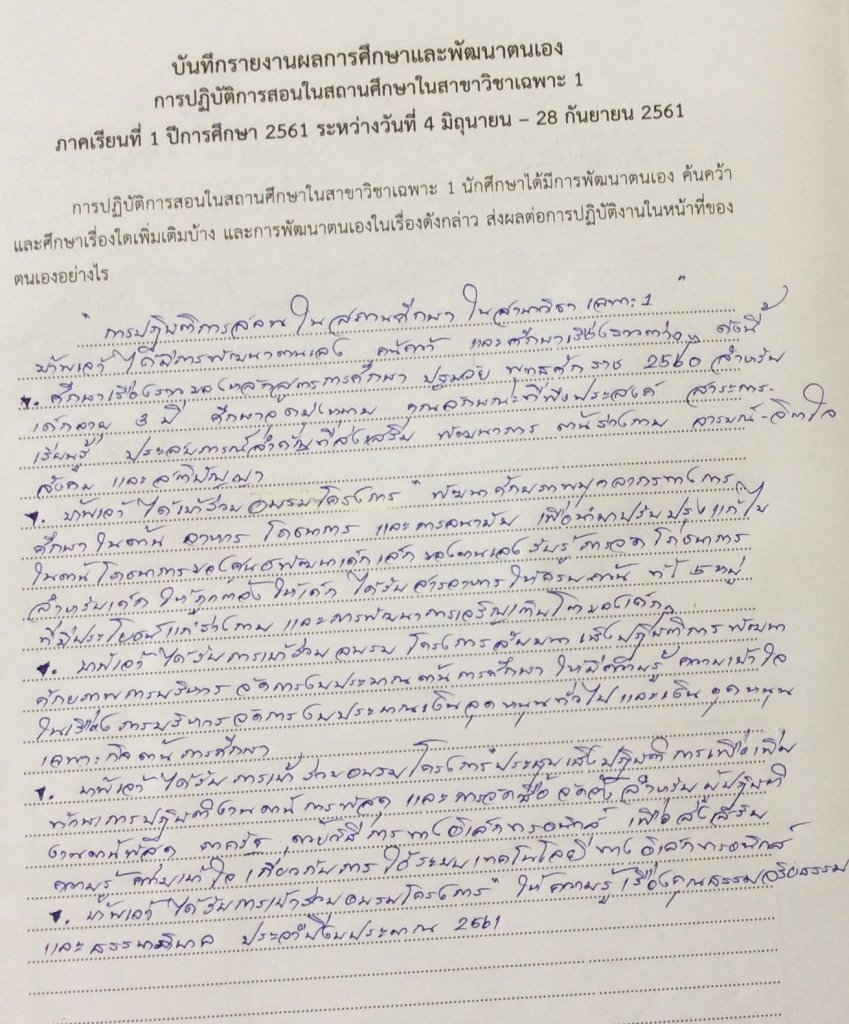 บันทึกรายงานผลการศึกษาและพัฒนาตนเอง
การปฏิบัติการสอนในสถานศึกษาในสาขาวิชาเฉพาะ 1
ภาคเรียนที่ 1 ปีการศึกษา 2561 ระหว่างวันที่ 4 มิถุนายน – 28 กันยายน 2561
การปฏิบัติการสอนในสถานศึกษาในสาขาวิชาเฉพาะ 1 นักศึกษาได้มีการพัฒนาตนเอง ค้นคว้า
และศึกษาเรื่องใดเพิ่มเติมบ้าง และการพัฒนาตนเองในเรื่องดังกล่าว ส่งผลต่อการปฏิบัติงานในหน้าที่ของ
ตนเองอย่างไร
" การปฏิบัติการสอน ในสถานศึกษา ในสาขาวิชา เฉพาะ 1 "
ข้าพเจ้า ได้มีการพัฒนาตนเอง ค้นคว้า และศึกษาเรื่องราวต่างๆ ดังนี้
1. ศึกษาเรื่องราวของหลักสูตรการศึกษา ปฐมวัย พุทธศักราช 2560 สำหรับ
เด็กอายุ 3 ปี ศึกษาจุดมุ่งหมาย คุณลักษณะที่พึงประสงค์ สาระการ-
เรียนรู้ ประสบการณ์สำคัญที่ส่งเสริม พัฒนาการ ด้านร่างกาย อารมณ์-จิตใจ
สังคม และสติปัญญา
1. ข้าพเจ้า ได้เข้าร่วมอบรมโครงการ " พัฒนาศักยภาพบุคลากรทางการ
ศึกษา ในด้าน อาหาร โภชนาการ และการอนามัย เพื่อนำมาปรับปรุงแก้ไข
ในด้านโภชนาการของศูนย์พัฒนาเด็กเล็ก ของตนเอง รับรู้การจัดโภชนาการ
สำหรับเด็ก ให้ถูกต้อง ให้เด็ก ได้รับสารอาหาร ให้ครบถ้วน ทั้ง 5 หมู่
ที่มีประโยชน์แก่ร่างกาย และการพัฒนาการเจริญเติบโตของเด็กๆ
1. ข้าพเจ้า ได้รับการเข้าร่วมอบรม โครงการสัมมนา เชิงปฏิบัติการ พัฒนา
ศักยภาพการบริหาร จัดการงบประมาณด้านการศึกษา ให้มีความรู้ ความเข้าใจ
ในเรื่องการบริหารจัดการงบประมาณเงินอุดหนุนทั่วไป และเงินอุดหนุน
เฉพาะกิจด้านการศึกษา
1. ข้าพเจ้า ได้รับการเข้าร่วมอบรมโครงการ "ประชุมเชิงปฏิบัติการเพื่อเพิ่ม
การปฏิบัติงานด้านการพัสดุ และการจัดซื้อจัดจ้าง สำหรับผู้ปฏิบัติ
งานด้านพัสดุ ภาครัฐ ด้วยวิธีการทางอิเล็กทรอนิกส์ เพื่อส่งเสริม
ความรู้ ความเข้าใจ เกี่ยวกับการใช้ระบบเทคโนโลยีทางอิเล็กทรอนิกส์
1. ข้าพเจ้า ได้รับการเข้าร่วมอบรมโครงการ " ให้ความรู้ เรื่องคุณธรรมจริยธรรม
และธรรมาภิบาล ประจำปีงบประมาณ 2561